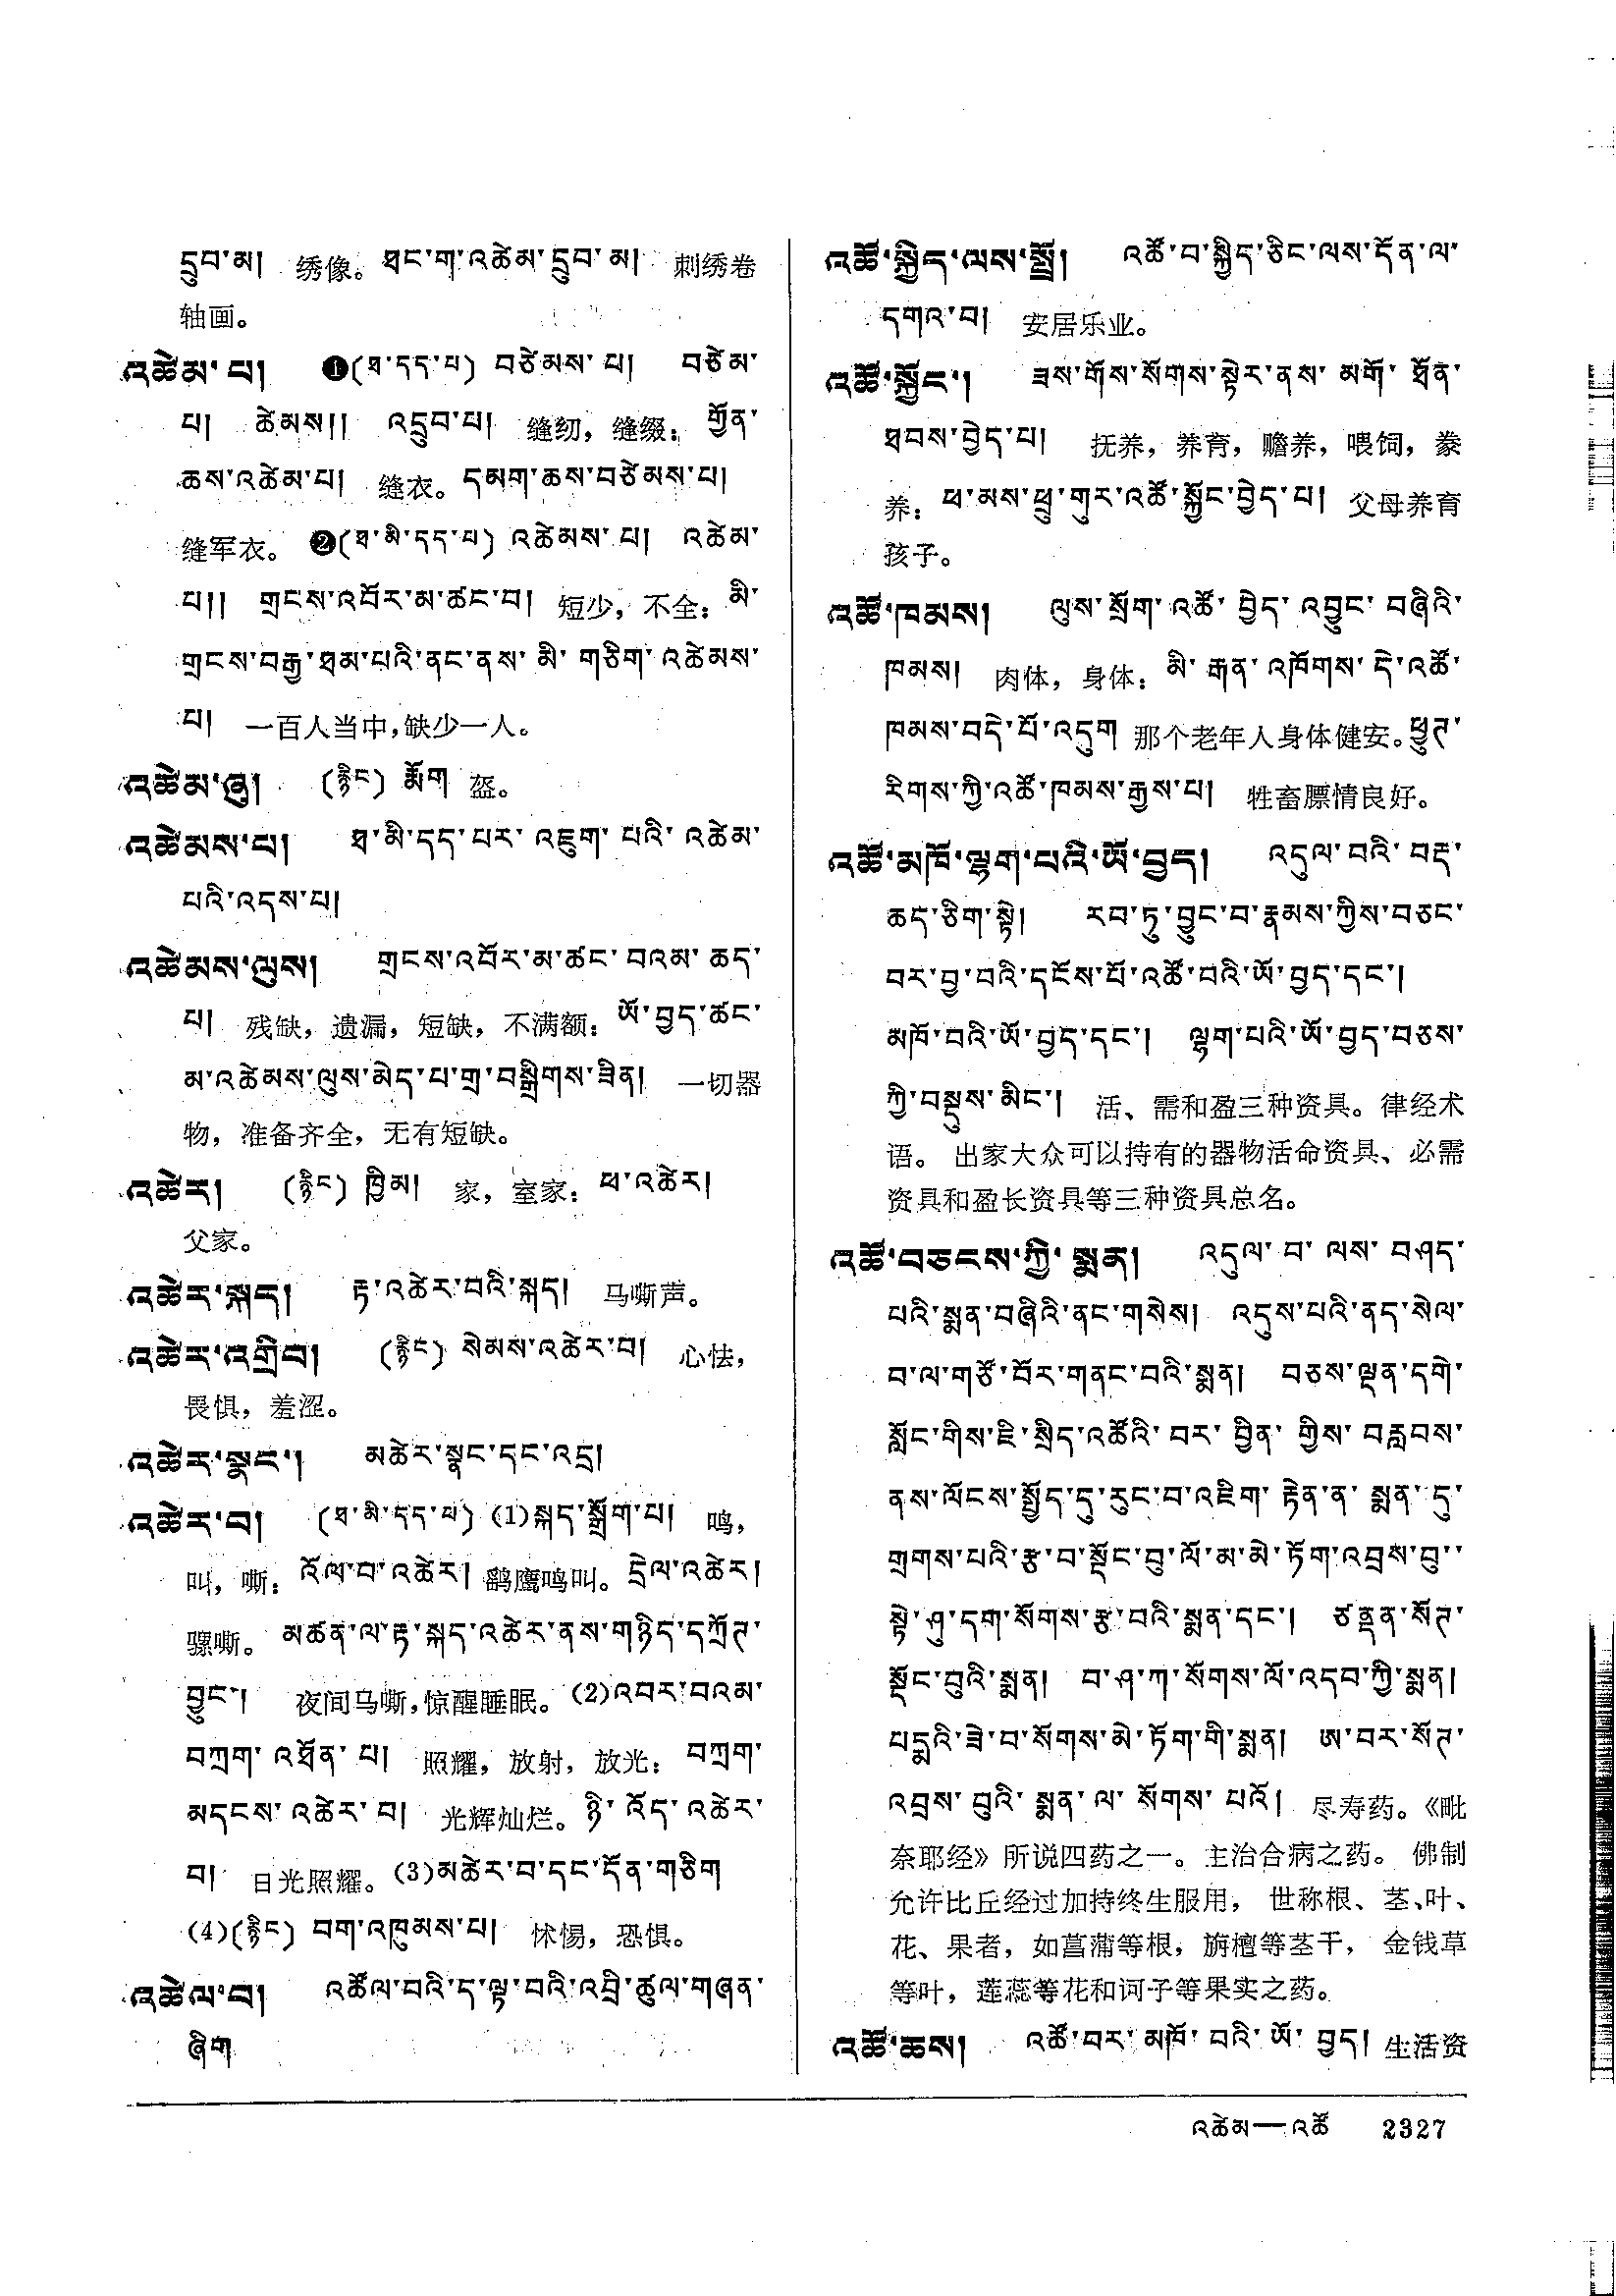 དྲུབ་མ། 绣像。ཐང་ག་འཚེམ་དྲུབ་མ། 刺绣卷
轴画。
འཚེམ་པ། ❶(ཐ་དད་པ) བཙེམས་པ། བཙེམ་
པ། ཚེམས།། འདྲུབ་པ། 缝纫，缝缀：གྱོན་
ཆས་འཚེམ་པ། 缝衣。དམག་ཆས་བཙེམས་པ།
缝军衣。❷(ཐ་མི་དད་པ) འཚེམས་པ། འཚེམ་
པ།། གྲངས་འབོར་མ་ཚང་བ། 短少，不全：མི་
གྲངས་བརྒྱ་ཐམ་པའི་ནང་ནས་མི་གཅིག་འཚེམས་
པ། 一百人当中，缺少一人。
འཚེམ་ཞུ། (རྙིང) རྨོག 盔。
འཚེམས་པ། ཐ་མི་དད་པར་འཇུག་པའི་འཚེམ་
པའི་འདས་པ།
འཚེམས་ལུས། གྲངས་འབོར་མ་ཚང་བའམ་ཆད་
པ། 残缺，遗漏，短缺，不满额：ཡོ་བྱད་ཚང་
མ་འཚེམས་ལུས་མེད་པ་གྲ་བསྒྲིགས་ཟིན། 一切器
物，准备齐全，无有短缺。
འཚེར། (རྙིང) ཁྱིམ། 家，室家：ཕ་འཚེར།
父家。
འཚེར་སྐད། རྟ་འཚེར་བའི་སྐད། 马嘶声。
འཚེར་འགྲིབ། (རྙིང) སེམས་འཚེར་བ། 心怯，
畏惧，羞涩。
འཚེར་སྣང་། མཚེར་སྣང་དང་འདྲ།
འཚེར་བ། (ཐ་མི་དད་པ) (1)སྐད་སྒྲོག་པ། 鸣，
叫，嘶：འོལ་བ་འཚེར། 鹞鹰鸣叫。དྲེལ་འཚེར།
骡嘶。མཚན་ལ་རྟ་སྐད་འཚེར་ནས་གཉིད་དཀྲོཊ་
བྱུང་། 夜间马嘶，惊醒睡眠。(2)འབར་བའམ་
བཀྲག་འཐོན་པ། 照耀，放射，放光：བཀྲག་
མདངས་འཚེར་བ། 光辉灿烂。ཉི་འོད་འཚེར་
བ། 日光照耀。(3)མཚེར་བ་དང་དོན་གཅིག
(4)(རྙིང) བག་འཁུམས་པ། 怵惕，恐惧。
འཚེལ་བ། འཚོལ་བའི་ད་ལྟ་བའི་འབྲི་ཚུལ་གཞན་
ཞིག
འཚོ་སྐྱིད་ལས་སྤྲོ། འཚོ་བ་སྐྱིད་ཅིང་ལས་དོན་ལ་
དགའ་བ། 安居乐业。
འཚོ་སྐྱོང་། ཟས་གོས་སོགས་སྟེར་ནས་མགོ་ཐོན་
ཐབས་བྱེད་པ། 抚养，养育，赡养，喂饲，豢
养：ཕ་མས་ཕྲུ་གུར་འཚོ་སྐྱོང་བྱེད་པ། 父母养育
孩子。
འཚོ་ཁམས། ལུས་སྲོག་འཚོ་བྱེད་འབྱུང་བཞིའི་
ཁམས། 肉体，身体：མི་རྒན་འཁོགས་དེ་འཚོ་
ཁམས་བདེ་པོ་འདུག 那个老年人身体健安。ཕྱུཊ་
རིགས་ཀྱི་འཚོ་ཁམས་རྒྱས་པ། 牲畜膘情良好。
འཚོ་མཁོ་ལྷག་པའི་ཡོ་བྱད། འདུལ་བའི་བརྡ་
ཆད་ཅིག་སྟེ། རབ་ཏུ་བྱུང་བ་རྣམས་ཀྱིས་བཅང་
བར་བྱ་བའི་དངོས་པོ་འཚོ་བའི་ཡོ་བྱད་དང་།
མཁོ་བའི་ཡོ་བྱད་དང་། ལྷག་པའི་ཡོ་བྱད་བཅས་
ཀྱི་བསྡུས་མིང་། 活、需和盈三种资具。律经术
语。出家大众可以持有的器物活命资具、必需
资具和盈长资具等三种资具总名。
འཚོ་བཅངས་ཀྱི་སྨན། འདུལ་བ་ལས་བཤད་
པའི་སྨན་བཞིའི་ནང་གསེས། འདུས་པའི་ནད་སེལ་
བ་ལ་གཙོ་བོར་གནང་བའི་སྨན། བཅས་ལྡན་དགེ་
སློང་གིས་ཇི་སྲིད་འཚོའི་བར་བྱིན་གྱིས་བརླབས་
ནས་ལོངས་སྤྱོད་དུ་རུང་བ་འཇིག་རྟེན་ན་སྨན་དུ་
གྲགས་པའི་རྩ་བ་སྡོང་བུ་ལོ་མ་མེ་ཏོག་འབྲས་བུ་
སྟེ་ཤུ་དག་སོགས་རྩ་བའི་སྨན་དང་། ཙནྡན་སོཊ་
སྡོང་བུའི་སྨན། བ་ཤ་ཀ་སོགས་ལོ་འདབ་ཀྱི་སྨན།
པདྨའི་ཟེ་བ་སོགས་མེ་ཏོག་གི་སྨན། ཨ་བར་སོཊ་
འབྲས་བུའི་སྨན་ལ་སོགས་པའོ། 尽寿药。《毗
奈耶经》所说四药之一。主治合病之药。佛制
允许比丘经过加持终生服用，世称根、茎、叶、
花、果者，如菖蒲等根，旃檀等茎干，金钱草
等叶，莲蕊等花和诃子等果实之药。
འཚོ་ཆས། འཚོ་བར་མཁོ་བའི་ཡོ་བྱད། 生活资
འཚེམ—འཚོ 2327